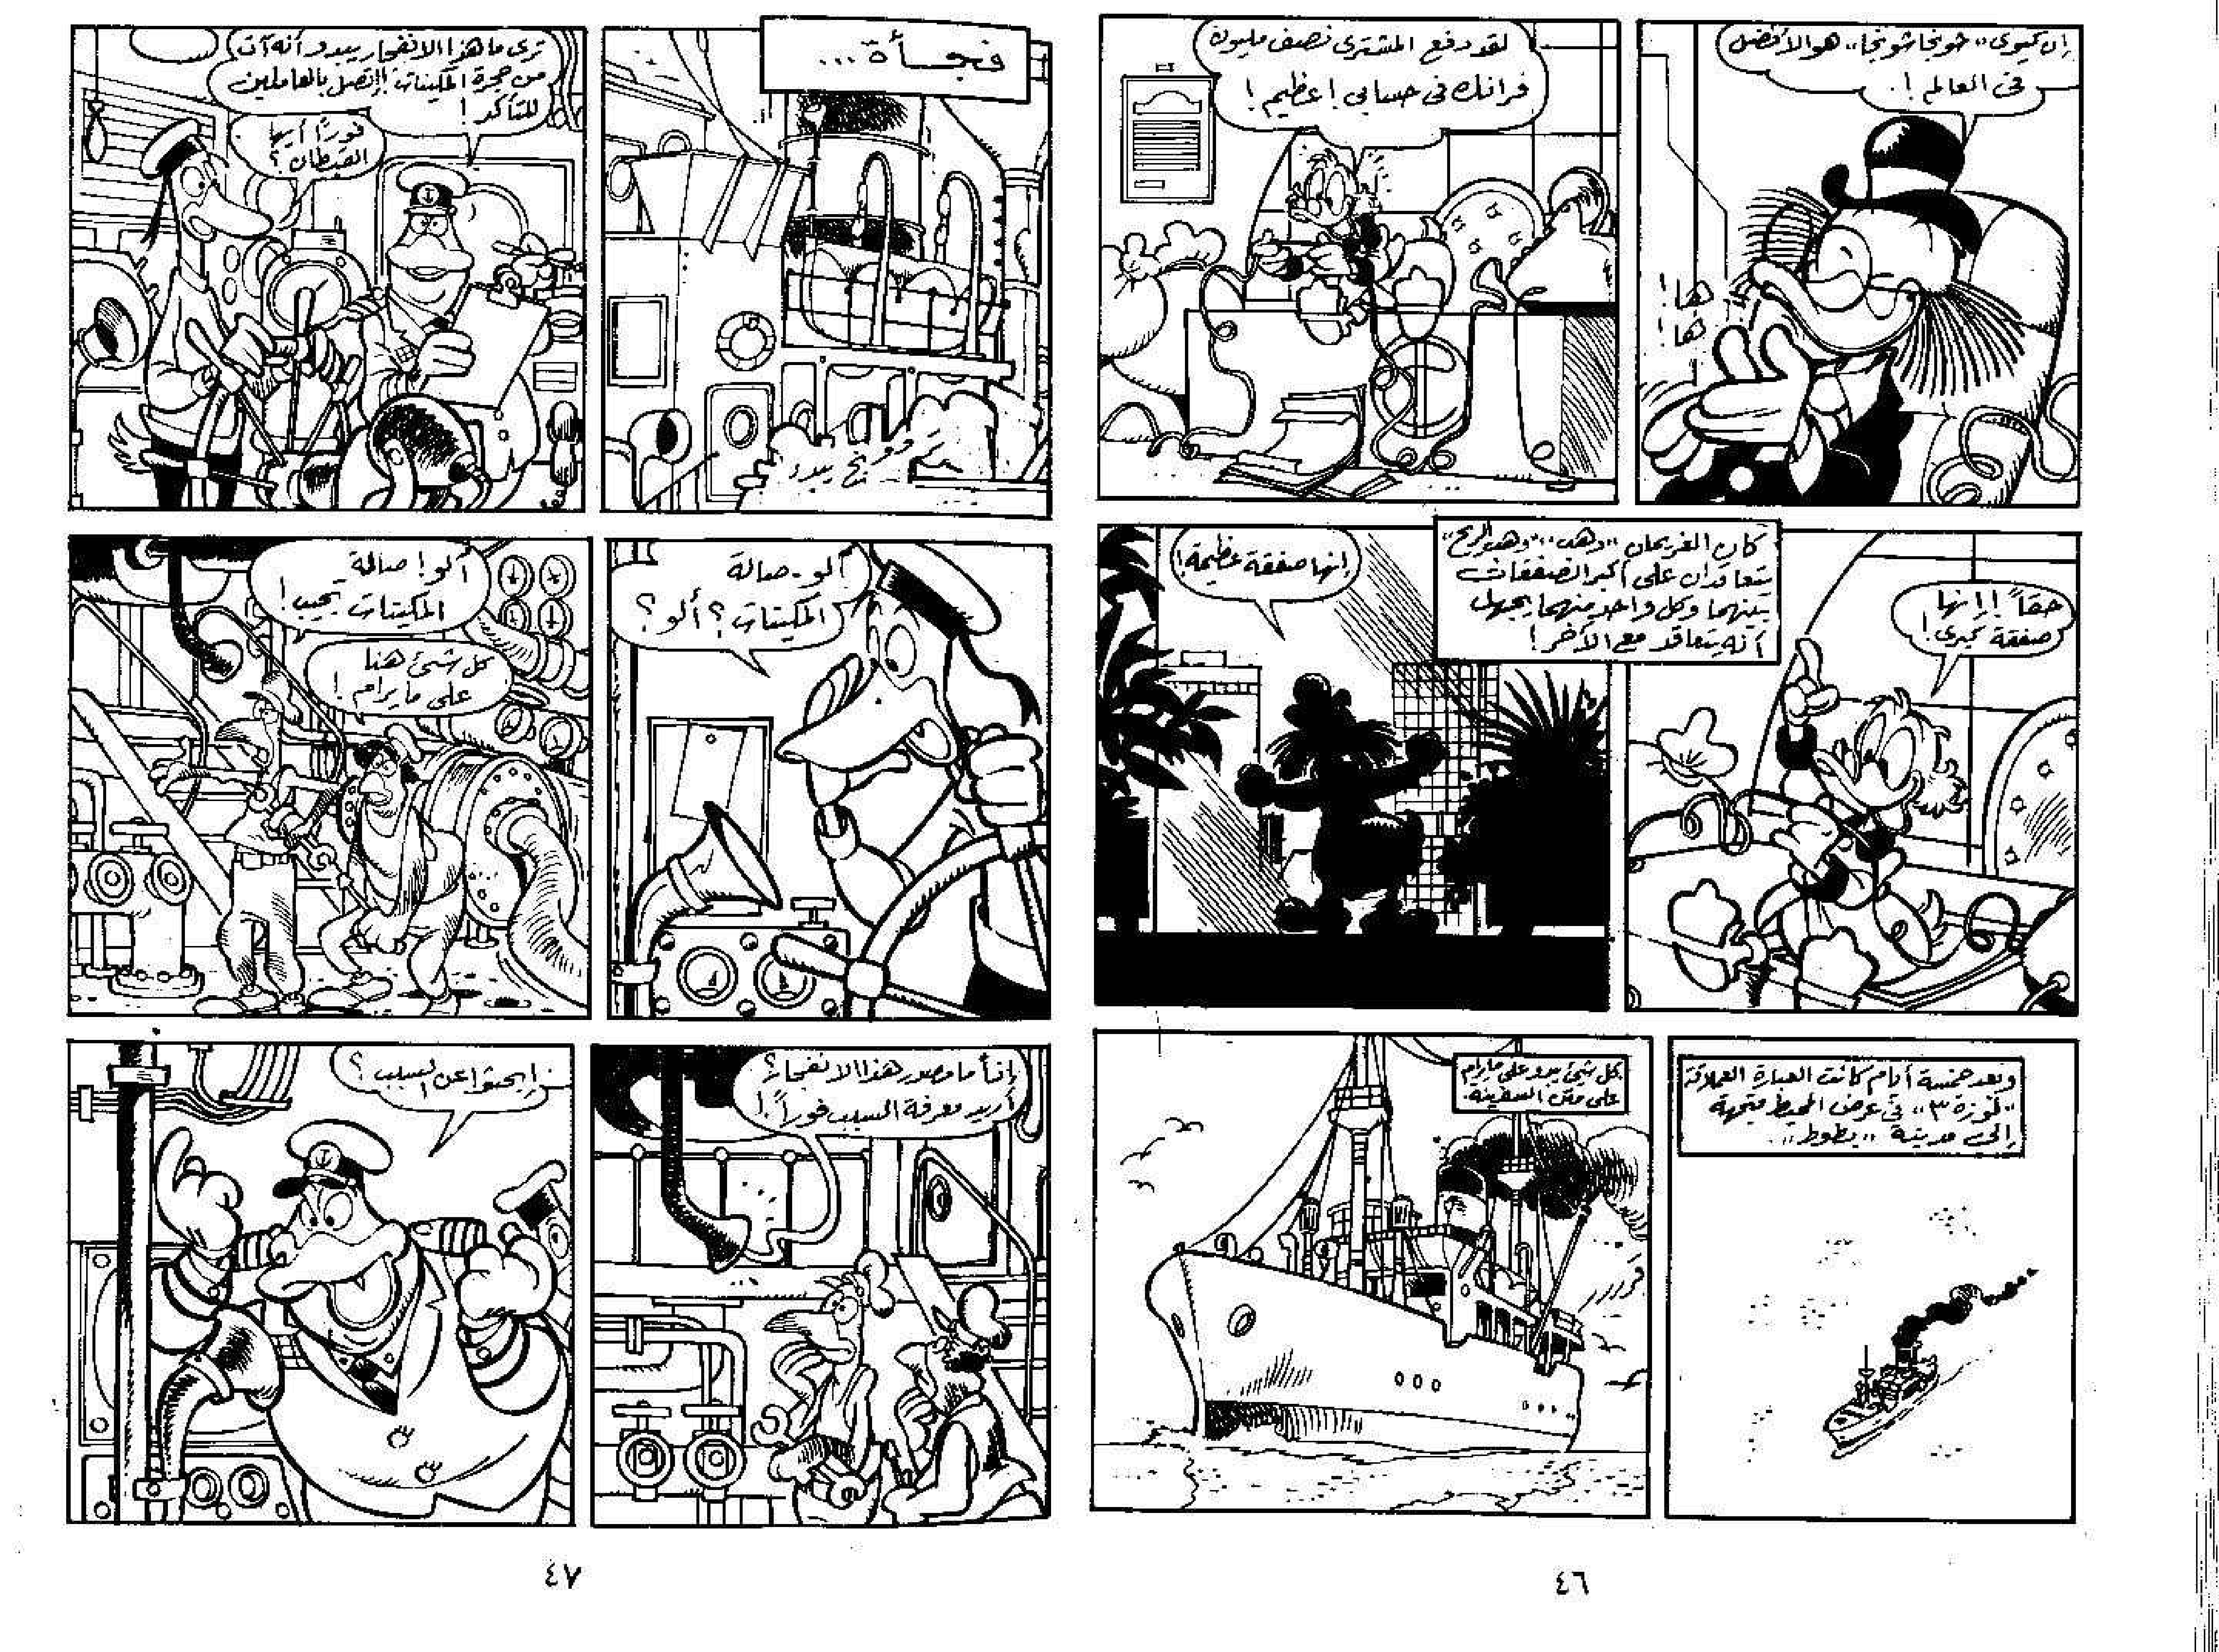 إن كيوى "خونجاشونجا" هو الأفضل
فى العالم!
ها!
ها!
لقد دفع المشترى نصف مليون
فرانك فى حسابى! عظيم!
حقاً! إنها
صفقة كبرى!
كان الغريمان "دهب" و
يتعاقدان على أكبر الصفقات
بينهما وكل واحد منهما يجهل
أنه يتعاقد مع الآخر!
إنها صفقة عظيمة!
وبعد خمسة أيام كانت العبارة العملاقة
"لوزة ٣" فى عرض المحيط متجهة
إلى مدينة "بطوط".
كل شئ يبدو على مايرام
على متن السفينة.
٤٦
فجـأة...
ترى ما هذا الانفجار يبدو أنه آت
من حجرة المكينات! إتصل بالعاملين
للتأكد!
فوراً أيها
القبطان؟
ألو- صالة
المكينات؟ ألو؟
ألو! صالة
المكينات يجيب!
كل شئ هنا
على مايرام!
إذاً ما مصدر هذا الانفجار؟
أريد معرفة السبب فوراً!
إبحثوا عن السبب؟
٤٧